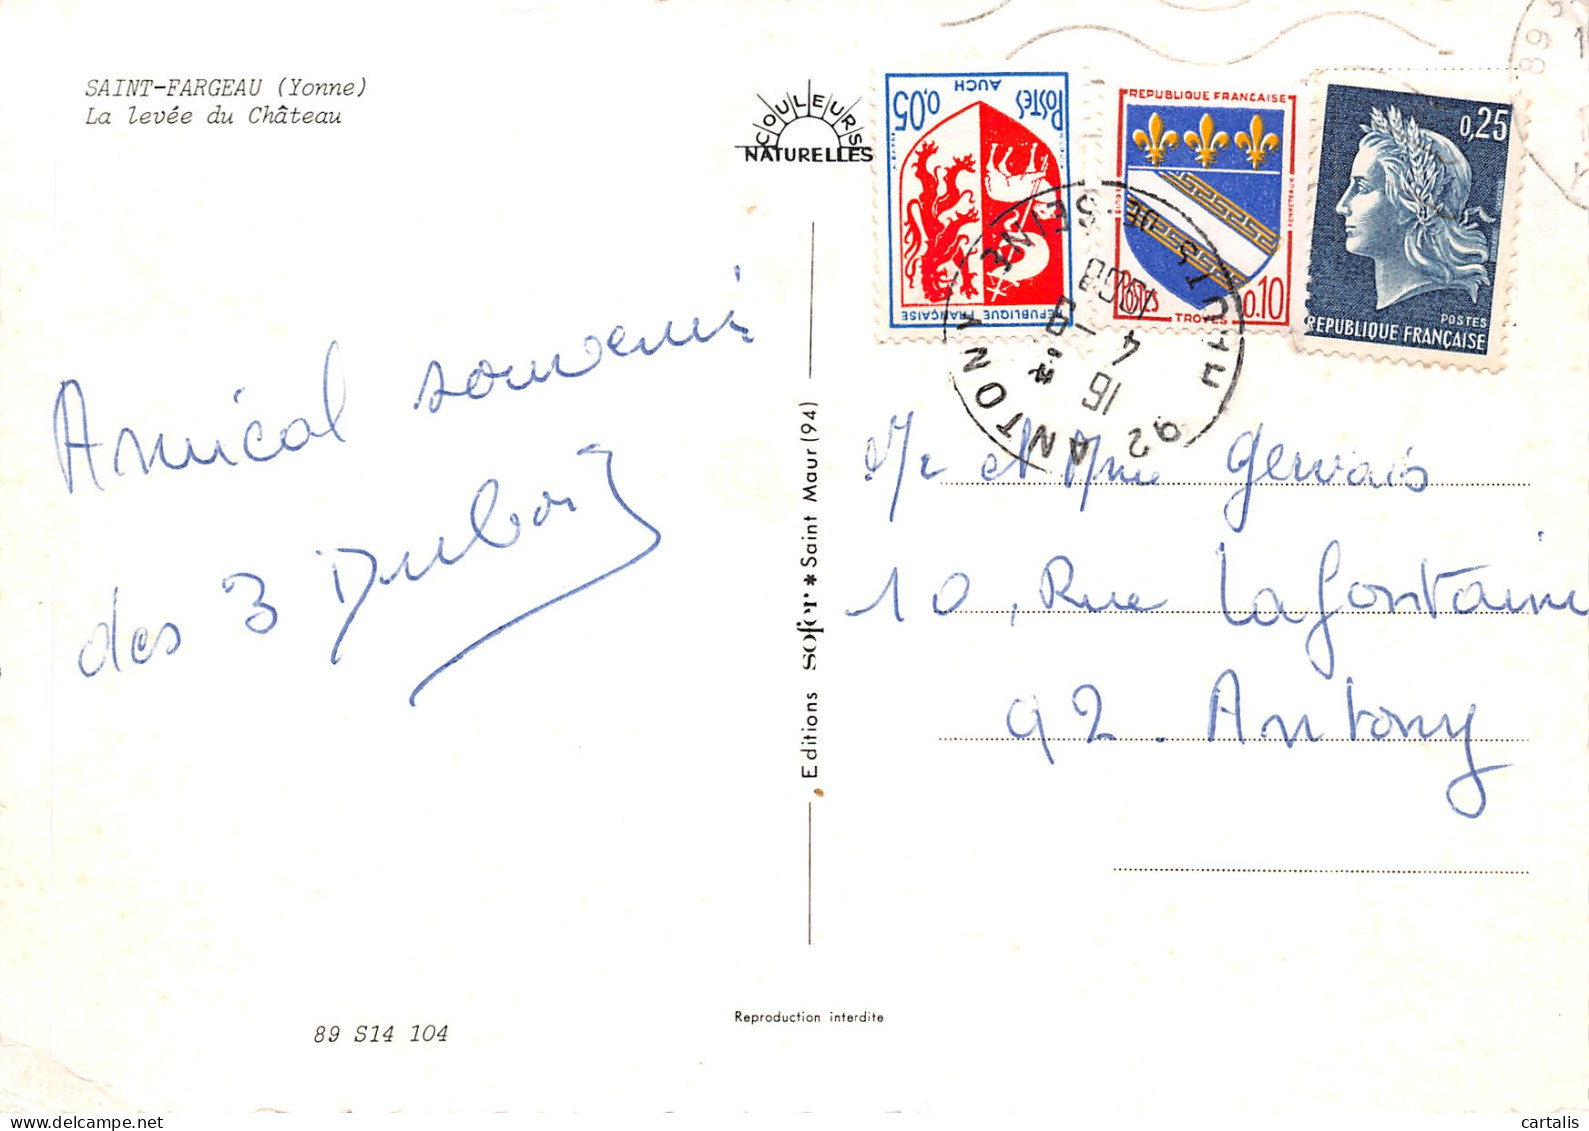 SAINT-FARGEAU (Yonne)
La levée du Château
COULEURS
NATURELLES
Amical souvenir
des 3 Dubois
89 S14 104
Editions SOFER * Saint Maur (94)
Reproduction interdite
0,05
POSTES
AUCH
REPUBLIQUE FRANÇAISE
REPUBLIQUE FRANÇAISE
POSTES
0,10
TROYES
0,25
POSTES
REPUBLIQUE FRANÇAISE
92 ANTONY
HAUTS DE SEINE
16 H
4 - 8
1968
89 S
Mr et Mme Gervais
10, Rue Lafontaine
92. Antony
cartalis